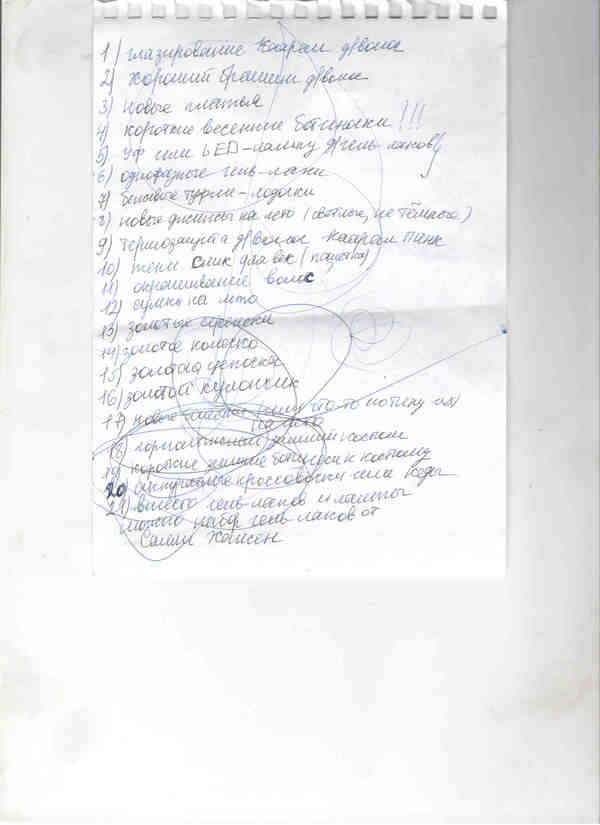 1) глазирование Каарал д/волос
2) хороший брашинг д/волос
3) новые платья
4) короткие весенние ботиночки!!!
5) УФ или LED-лампу д/гель-лаков
6) однофазные гель-лаки
7) бежевые туфли-лодочки
8) новые джинсы на лето (светлые, не тёмного)
9) термозащита д/волос Каарал Пинк
10) тени для век
11) окрашивание волос
12) сумка на лето
13) золотые сережки
14) золотое колечко
15) золотая цепочка
16) золотой кулончик
17) новые что-то
на лето
18) горнолыжный зимний костюм
19) короткие зимние ботиночки к костюму
20) спортивные кроссовочки или кеды
21) вместо гель-лаков и лампы
можно набор гель-лаков от
Салли Хансен